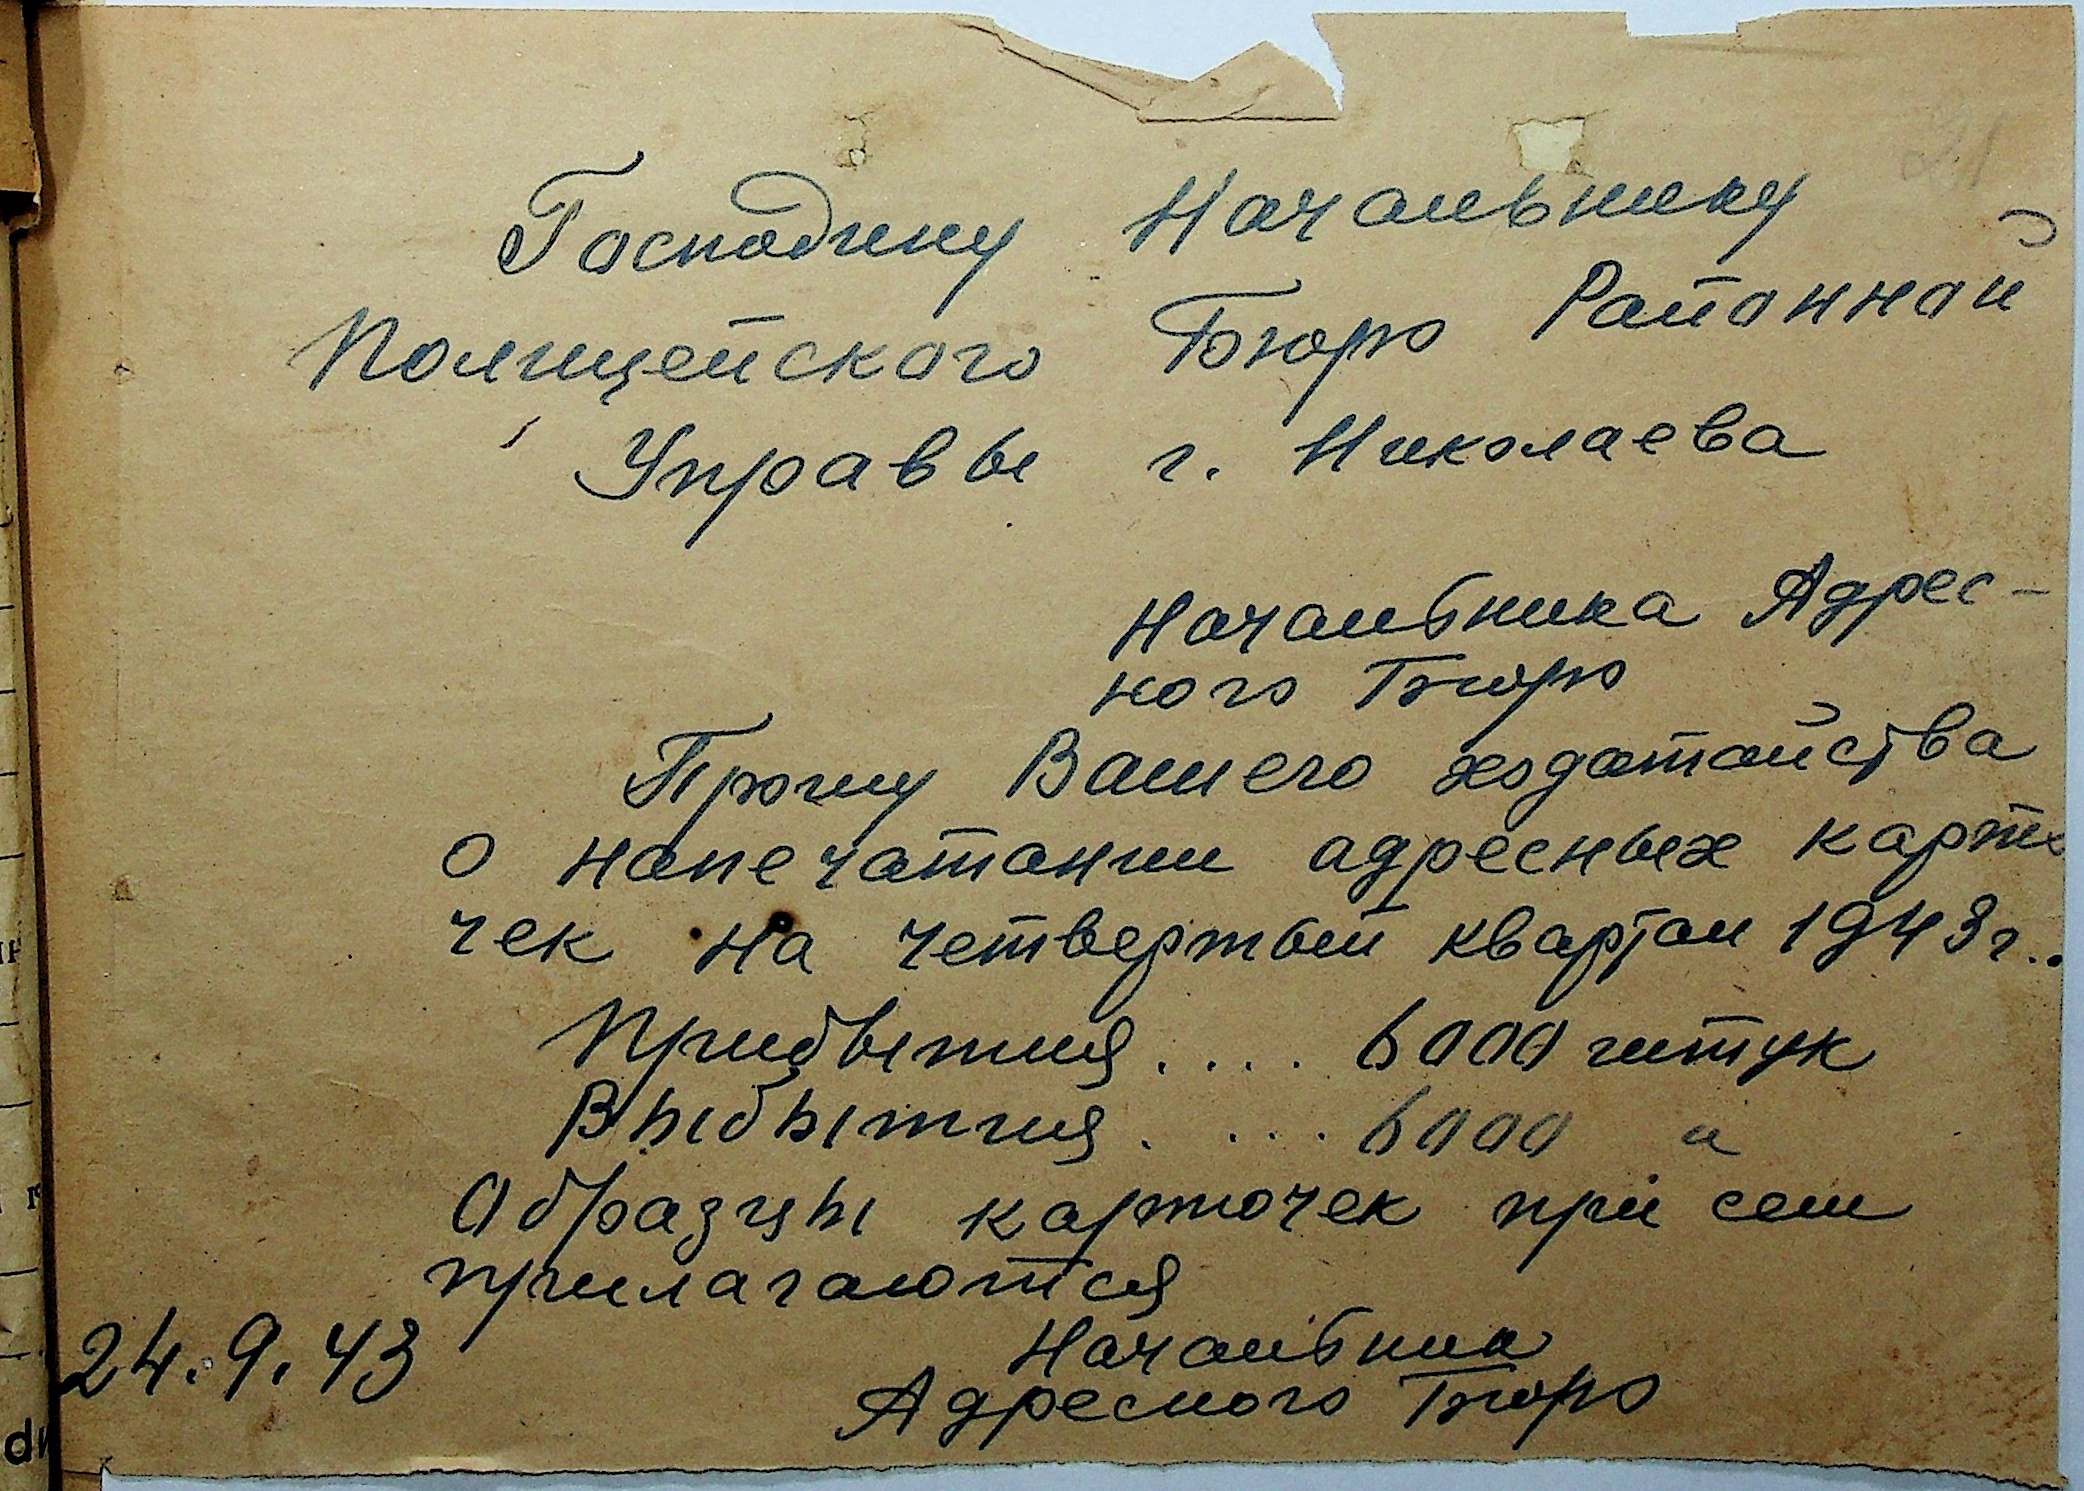 21
Господину Начальнику
Полицейского Бюро Районной
Управы г. Николаева
Начальника Адрес-
ного Бюро
Прошу Вашего ходатайства
о напечатании адресных карто
чек на четвертый квартал 1943 г..
Прибытия . . . . 6000 штук
Выбытия . . . . 6000 "
Образцы карточек при сем
прилагаются
24.9.43
Начальник
Адресного Бюро